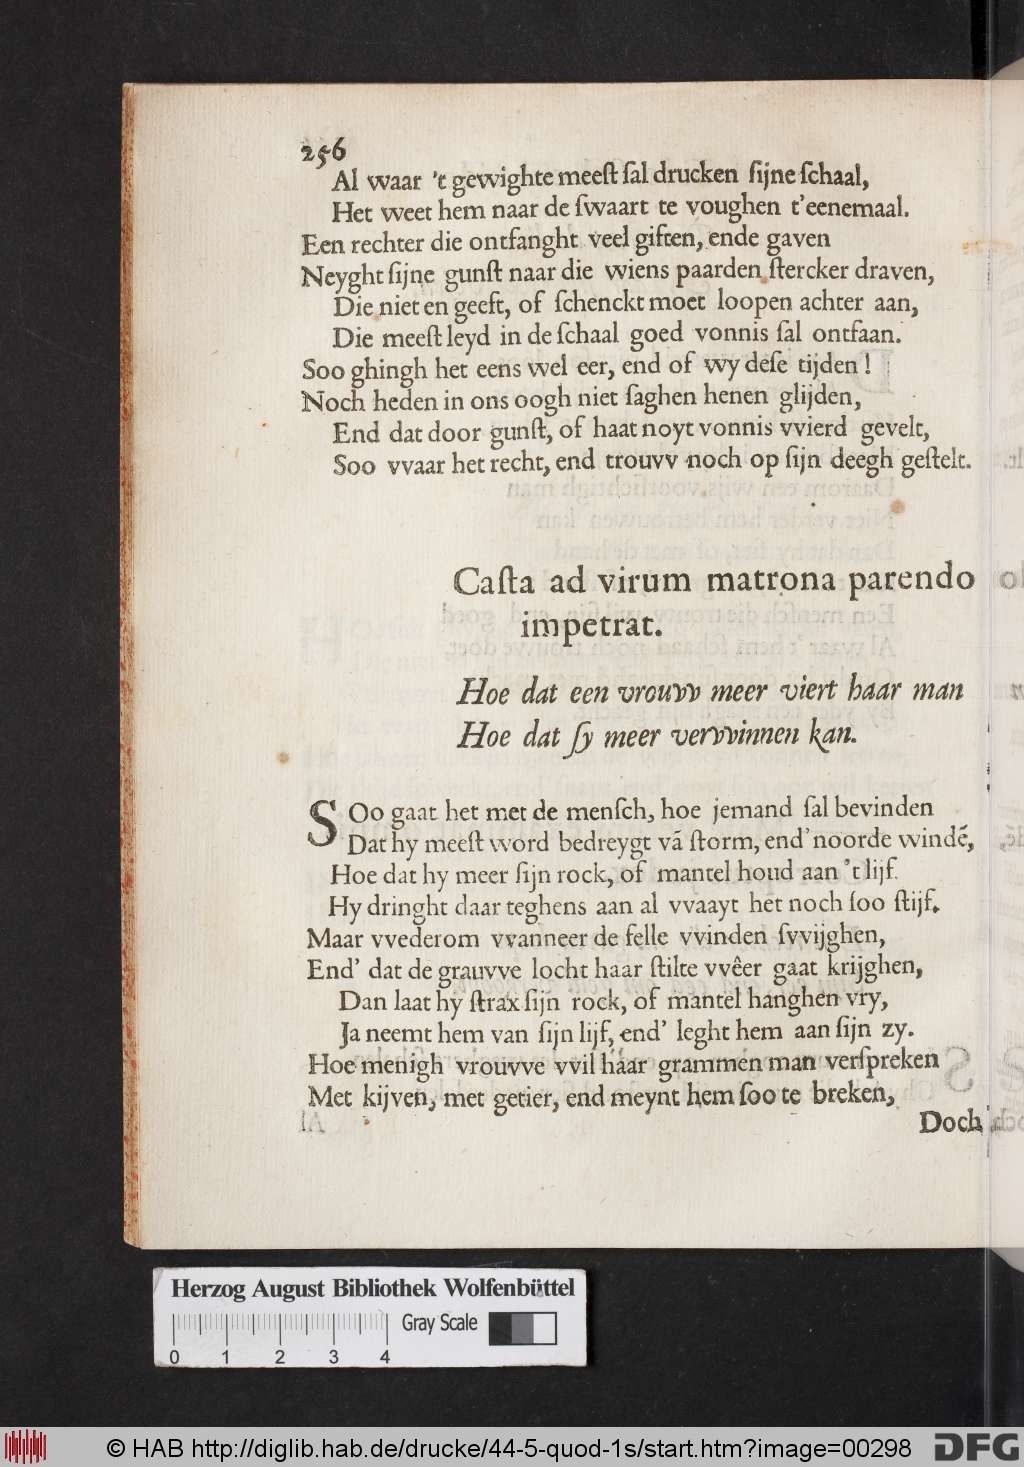 256
Al waar 't gewighte meeſt ſal drucken ſijne ſchaal,
Het weet hem naar de ſwaart te voughen t'eenemaal.
Een rechter die ontfanght veel giften, ende gaven
Neyght ſijne gunſt naar die wiens paarden ſtercker draven,
Die niet en geeft, of ſchenckt moet loopen achter aan,
Die meeſt leyd in de ſchaal goed vonnis ſal ontfaan.
Soo ghingh het eens wel eer, end of wy deſe tijden!
Noch heden in ons oogh niet ſaghen henen glijden,
End dat door gunſt, of haat noyt vonnis vvierd gevelt,
Soo vvaar het recht, end trouvv noch op ſijn deegh geſtelt.
Caſta ad virum matrona parendo
impetrat.
Hoe dat een vrouvv meer viert haar man
Hoe dat ſy meer vervvinnen kan.
SOo gaat het met de menſch, hoe jemand ſal bevinden
Dat hy meeſt word bedreygt vã ſtorm, end' noorde windẽ,
Hoe dat hy meer ſijn rock, of mantel houd aan 't lijf.
Hy dringht daar teghens aan al vvaayt het noch ſoo ſtijf.
Maar vvederom vvanneer de felle vvinden ſvvijghen,
End' dat de grauvve locht haar ſtilte vvêer gaat krijghen,
Dan laat hy ſtrax ſijn rock, of mantel hanghen vry,
Ja neemt hem van ſijn lijf, end' leght hem aan ſijn zy.
Hoe menigh vrouvve vvil haar grammen man verſpreken
Met kijven, met getier, end meynt hem ſoo te breken,
Doch
Herzog August Bibliothek Wolfenbüttel
0 1 2 3 4 Gray Scale
© HAB http://diglib.hab.de/drucke/44-5-quod-1s/start.htm?image=00298
DFG